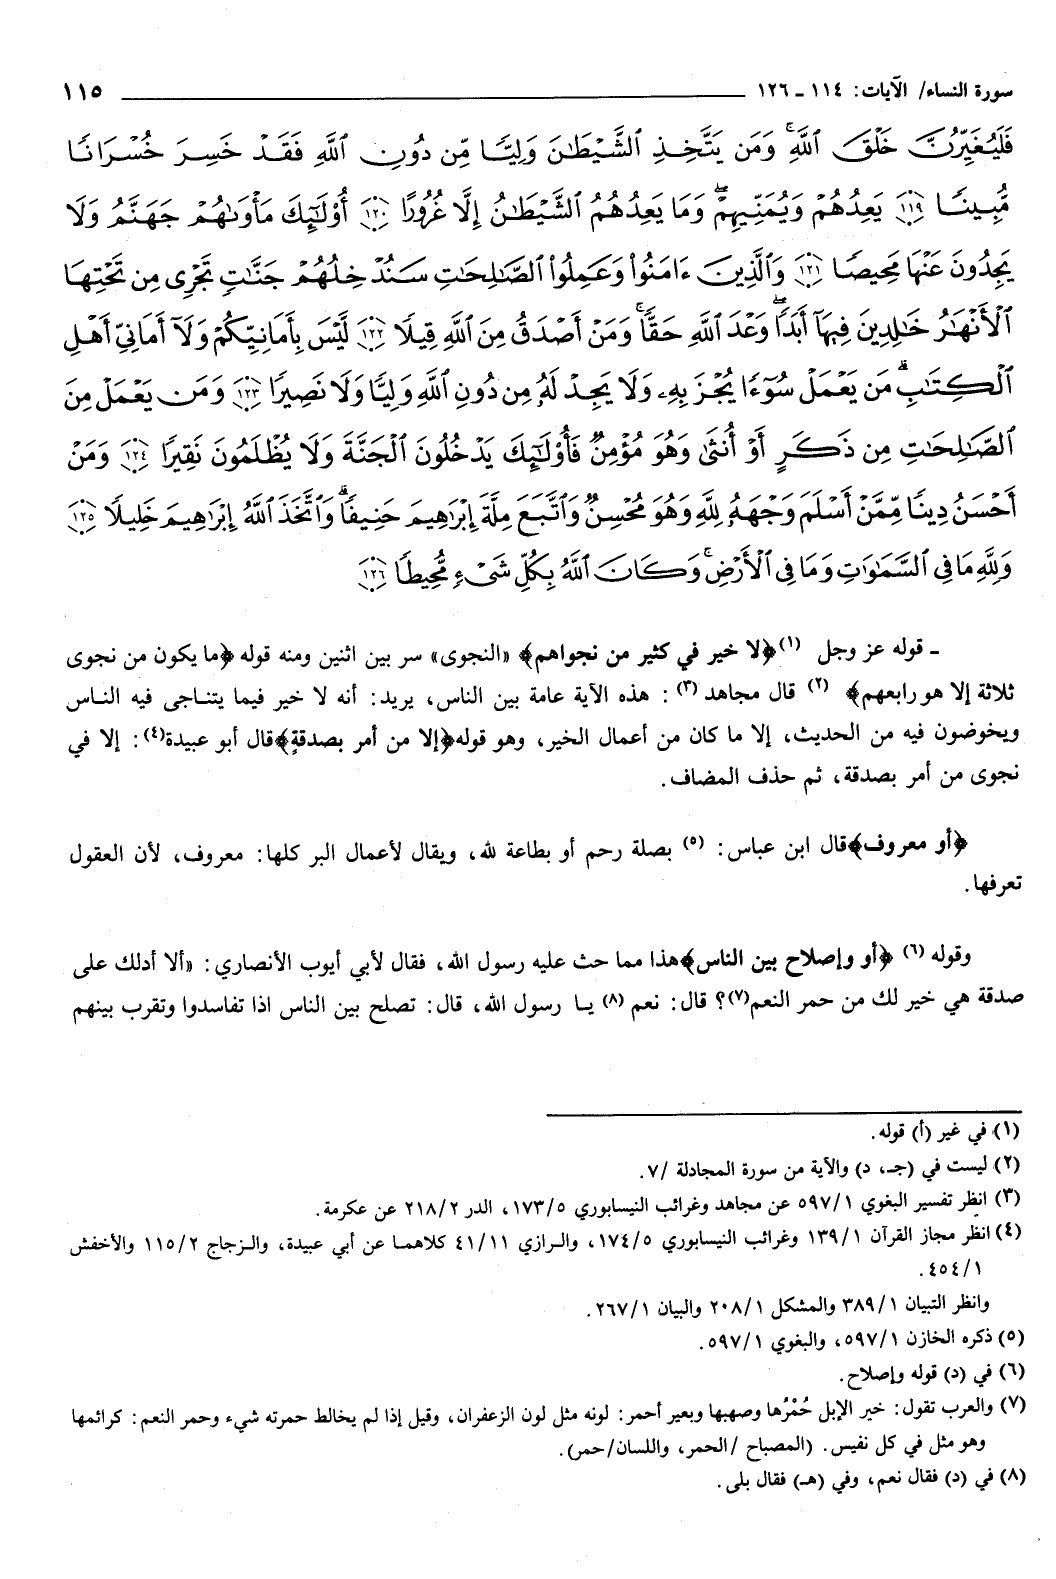 سورة النساء/ الآيات: ١١٤ ـ ١٢٦ ١١٥
فَلَيُغَيِّرُنَّ خَلْقَ ٱللَّهِۚ وَمَن يَتَّخِذِ ٱلشَّيْطَٰنَ وَلِيًّا مِّن دُونِ ٱللَّهِ فَقَدْ خَسِرَ خُسْرَانًا
مُّبِينًا ١١٩ يَعِدُهُمْ وَيُمَنِّيهِمْۖ وَمَا يَعِدُهُمُ ٱلشَّيْطَٰنُ إِلَّا غُرُورًا ١٢٠ أُوْلَٰٓئِكَ مَأْوَىٰهُمْ جَهَنَّمُ وَلَا
يَجِدُونَ عَنْهَا مَحِيصًا ١٢١ وَٱلَّذِينَ ءَامَنُوا۟ وَعَمِلُوا۟ ٱلصَّٰلِحَٰتِ سَنُدْخِلُهُمْ جَنَّٰتٍ تَجْرِى مِن تَحْتِهَا
ٱلْأَنْهَٰرُ خَٰلِدِينَ فِيهَآ أَبَدًاۖ وَعْدَ ٱللَّهِ حَقًّاۚ وَمَنْ أَصْدَقُ مِنَ ٱللَّهِ قِيلًا ١٢٢ لَّيْسَ بِأَمَانِيِّكُمْ وَلَآ أَمَانِىِّ أَهْلِ
ٱلْكِتَٰبِۗ مَن يَعْمَلْ سُوٓءًا يُجْزَ بِهِۦ وَلَا يَجِدْ لَهُۥ مِن دُونِ ٱللَّهِ وَلِيًّا وَلَا نَصِيرًا ١٢٣ وَمَن يَعْمَلْ مِنَ
ٱلصَّٰلِحَٰتِ مِن ذَكَرٍ أَوْ أُنثَىٰ وَهُوَ مُؤْمِنٌ فَأُوْلَٰٓئِكَ يَدْخُلُونَ ٱلْجَنَّةَ وَلَا يُظْلَمُونَ نَقِيرًا ١٢٤ وَمَنْ
أَحْسَنُ دِينًا مِّمَّنْ أَسْلَمَ وَجْهَهُۥ لِلَّهِ وَهُوَ مُحْسِنٌ وَٱتَّبَعَ مِلَّةَ إِبْرَٰهِيمَ حَنِيفًاۗ وَٱتَّخَذَ ٱللَّهُ إِبْرَٰهِيمَ خَلِيلًا ١٢٥
وَلِلَّهِ مَا فِى ٱلسَّمَٰوَٰتِ وَمَا فِى ٱلْأَرْضِۚ وَكَانَ ٱللَّهُ بِكُلِّ شَىْءٍ مُّحِيطًا ١٢٦
ـ قوله عز وجل (١) ﴿لا خير في كثير من نجواهم﴾ «النجوى» سر بين اثنين ومنه قوله ﴿ما يكون من نجوى
ثلاثة إلا هو رابعهم﴾ (٢) قال مجاهد (٣) : هذه الآية عامة بين الناس، يريد: أنه لا خير فيما يتناجى فيه الناس
ويخوضون فيه من الحديث، إلا ما كان من أعمال الخير، وهو قوله ﴿إلا من أمر بصدقةٍ﴾ قال أبو عبيدة(٤): إلا في
نجوى من أمر بصدقة، ثم حذف المضاف.
﴿أو معروف﴾ قال ابن عباس: (٥) بصلة رحم أو بطاعة لله، ويقال لأعمال البر كلها: معروف، لأن العقول
تعرفها.
وقوله (٦) ﴿أو وإصلاح بين الناس﴾ هذا مما حث عليه رسول الله، فقال لأبي أيوب الأنصاري: «ألا أدلك على
صدقة هي خير لك من حمر النعم(٧)؟ قال: نعم (٨) يا رسول الله، قال: تصلح بين الناس اذا تفاسدوا وتقرب بينهم
(١) في غير (أ) قوله.
(٢) ليست في (جـ، د) والآية من سورة المجادلة /٧.
(٣) انظر تفسير البغوي ٥٩٧/١ عن مجاهد وغرائب النيسابوري ١٧٣/٥، الدر ٢١٨/٢ عن عكرمة.
(٤) انظر مجاز القرآن ١٣٩/١ وغرائب النيسابوري ١٧٤/٥، والرازي ٤١/١١ كلاهما عن أبي عبيدة، والزجاج ١١٥/٢ والأخفش
٤٥٤/١.
وانظر التبيان ٣٨٩/١ والمشكل ٢٠٨/١ والبيان ٢٦٧/١.
(٥) ذكره الخازن ٥٩٧/١، والبغوي ٥٩٧/١.
(٦) في (د) قوله وإصلاح.
(٧) والعرب تقول: خير الإبل حُمْرُها وصهبها وبعير أحمر: لونه مثل لون الزعفران، وقيل إذا لم يخالط حمرته شيء وحمر النعم: كرائمها
وهو مثل في كل نفيس. (المصباح /الحمر، واللسان/حمر).
(٨) في (د) فقال نعم، وفي (هـ) فقال بلى.